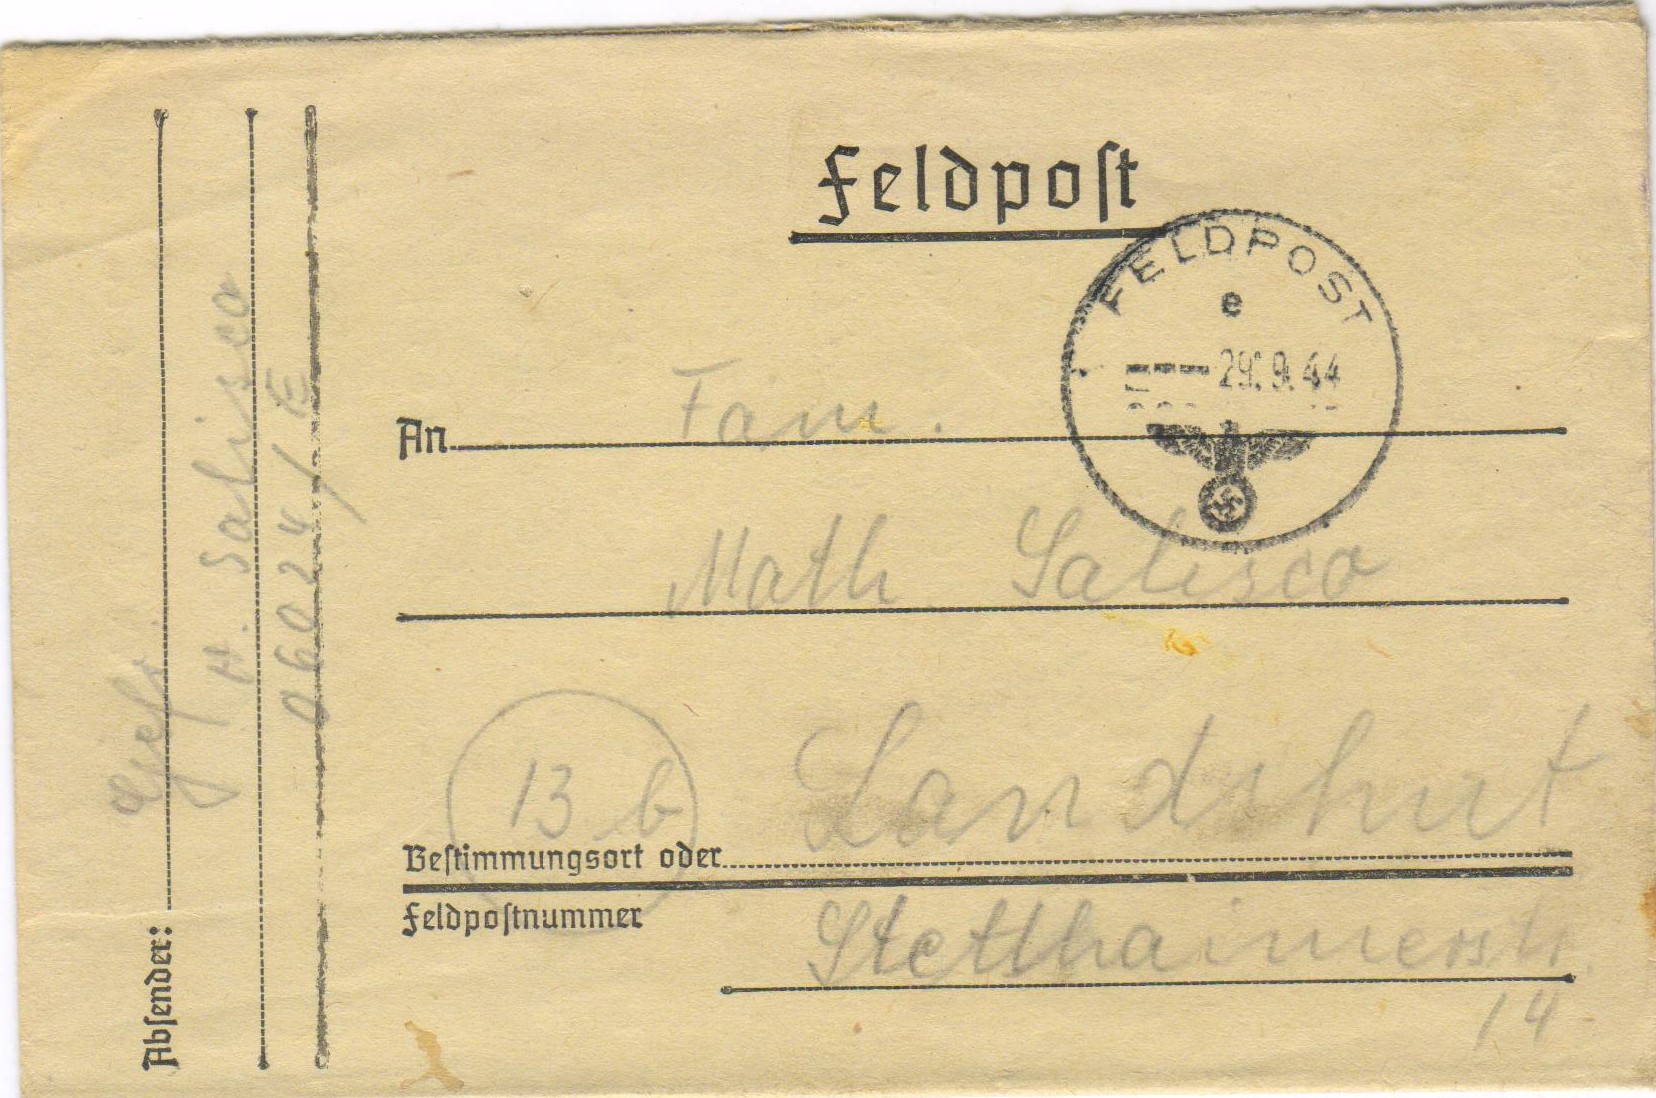 Feldpost
FELDPOST
e
29.9.44
An Fam.
Math. Salisco
13 b
Landshut
Bestimmungsort oder
Feldpostnummer
Stetthaimerstr.
14
Absender: Gefr.
H. Salisco
06024/E